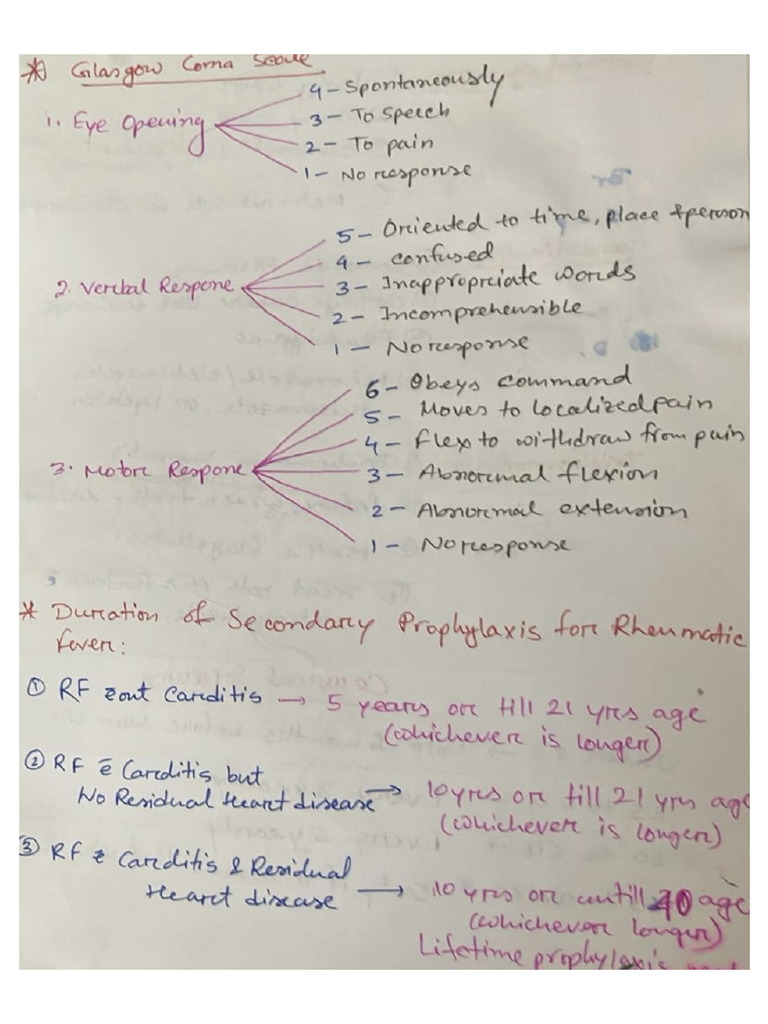 * Glasgow Coma Scale
1. Eye Opening
4 - Spontaneously
3 - To speech
2 - To pain
1 - No response
2. Verbal Respone
5 - Oriented to time, place & person
4 - confused
3 - Inappropriate words
2 - Incomprehensible
1 - No response
3. Motor Respone
6 - Obeys command
5 - Moves to localized pain
4 - Flex to withdraw from pain
3 - Abnormal flexion
2 - Abnormal extension
1 - No response
* Duration of Secondary Prophylaxis for Rheumatic
fever:
① RF c̄out Carditis → 5 years or till 21 yrs age
(whichever is longer)
② RF c̄ Carditis but
No Residual Heart disease → 10 yrs or till 21 yrs age
(whichever is longer)
③ RF c̄ Carditis & Residual
Heart disease → 10 yrs or untill 40 age
(whichever longer)
Lifetime prophylaxis